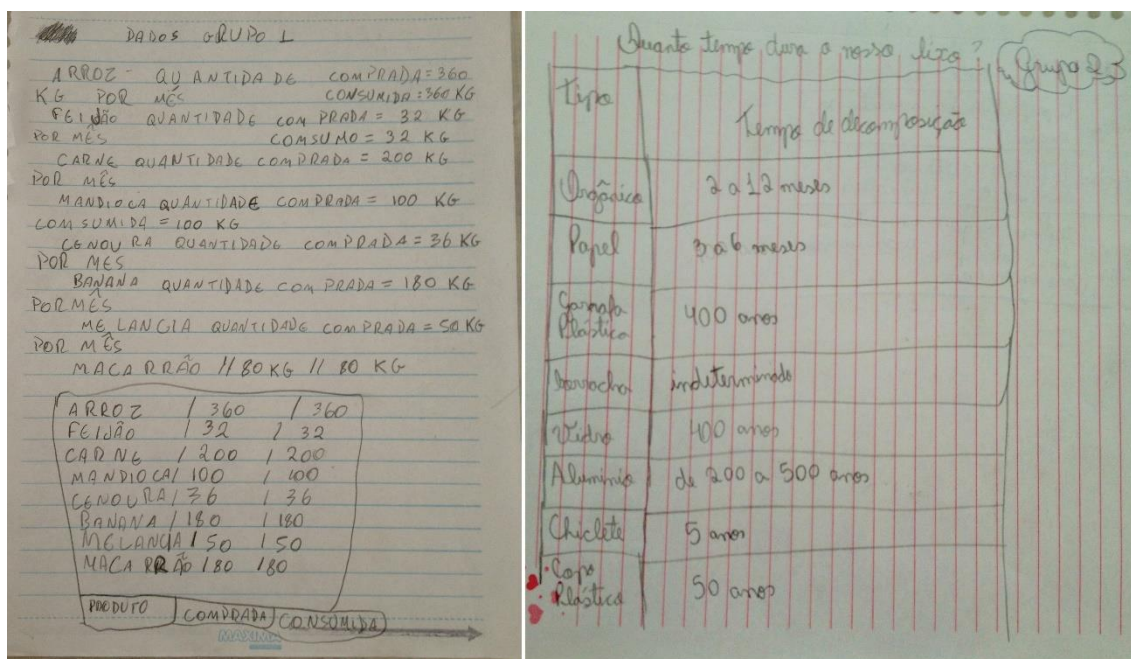 DADOS GRUPO 1
ARROZ - QUANTIDADE COMPRADA = 360
KG POR MÊS CONSUMIDA: 360 KG
FEIJÃO QUANTIDADE COMPRADA = 32 KG
POR MÊS COMSUMO = 32 KG
CARNE QUANTIDADE COMPRADA = 200 KG
POR MÊS
MANDIOCA QUANTIDADE COMPRADA = 100 KG
COMSUMIDA = 100 KG
CENOURA QUANTIDADE COMPRADA = 36 KG
POR MES
BANANA QUANTIDADE COMPRADA = 180 KG
POR MÊS
MELANCIA QUANTIDADE COMPRADA = 50 KG
POR MÊS
MACARRÃO // 80 KG // 80 KG
ARROZ / 360 / 360
FEIJÃO / 32 / 32
CARNE / 200 / 200
MANDIOCA / 100 / 100
CENOURA / 36 / 36
BANANA / 180 / 180
MELANCIA / 50 / 50
MACARRÃO / 80 / 80
PRODUTO COMPRADA CONSUMIDA
MAXIMA
Quanto tempo dura o nosso lixo? Grupo 2,3
Tipo Tempo de decomposição
Orgânico 2 a 12 meses
Papel 3 a 6 meses
Garrafa Plástica 400 anos
borracha indeterminado
Vidro 400 anos
Aluminio de 200 a 500 anos
Chiclete 5 anos
Copo Plástico 50 anos